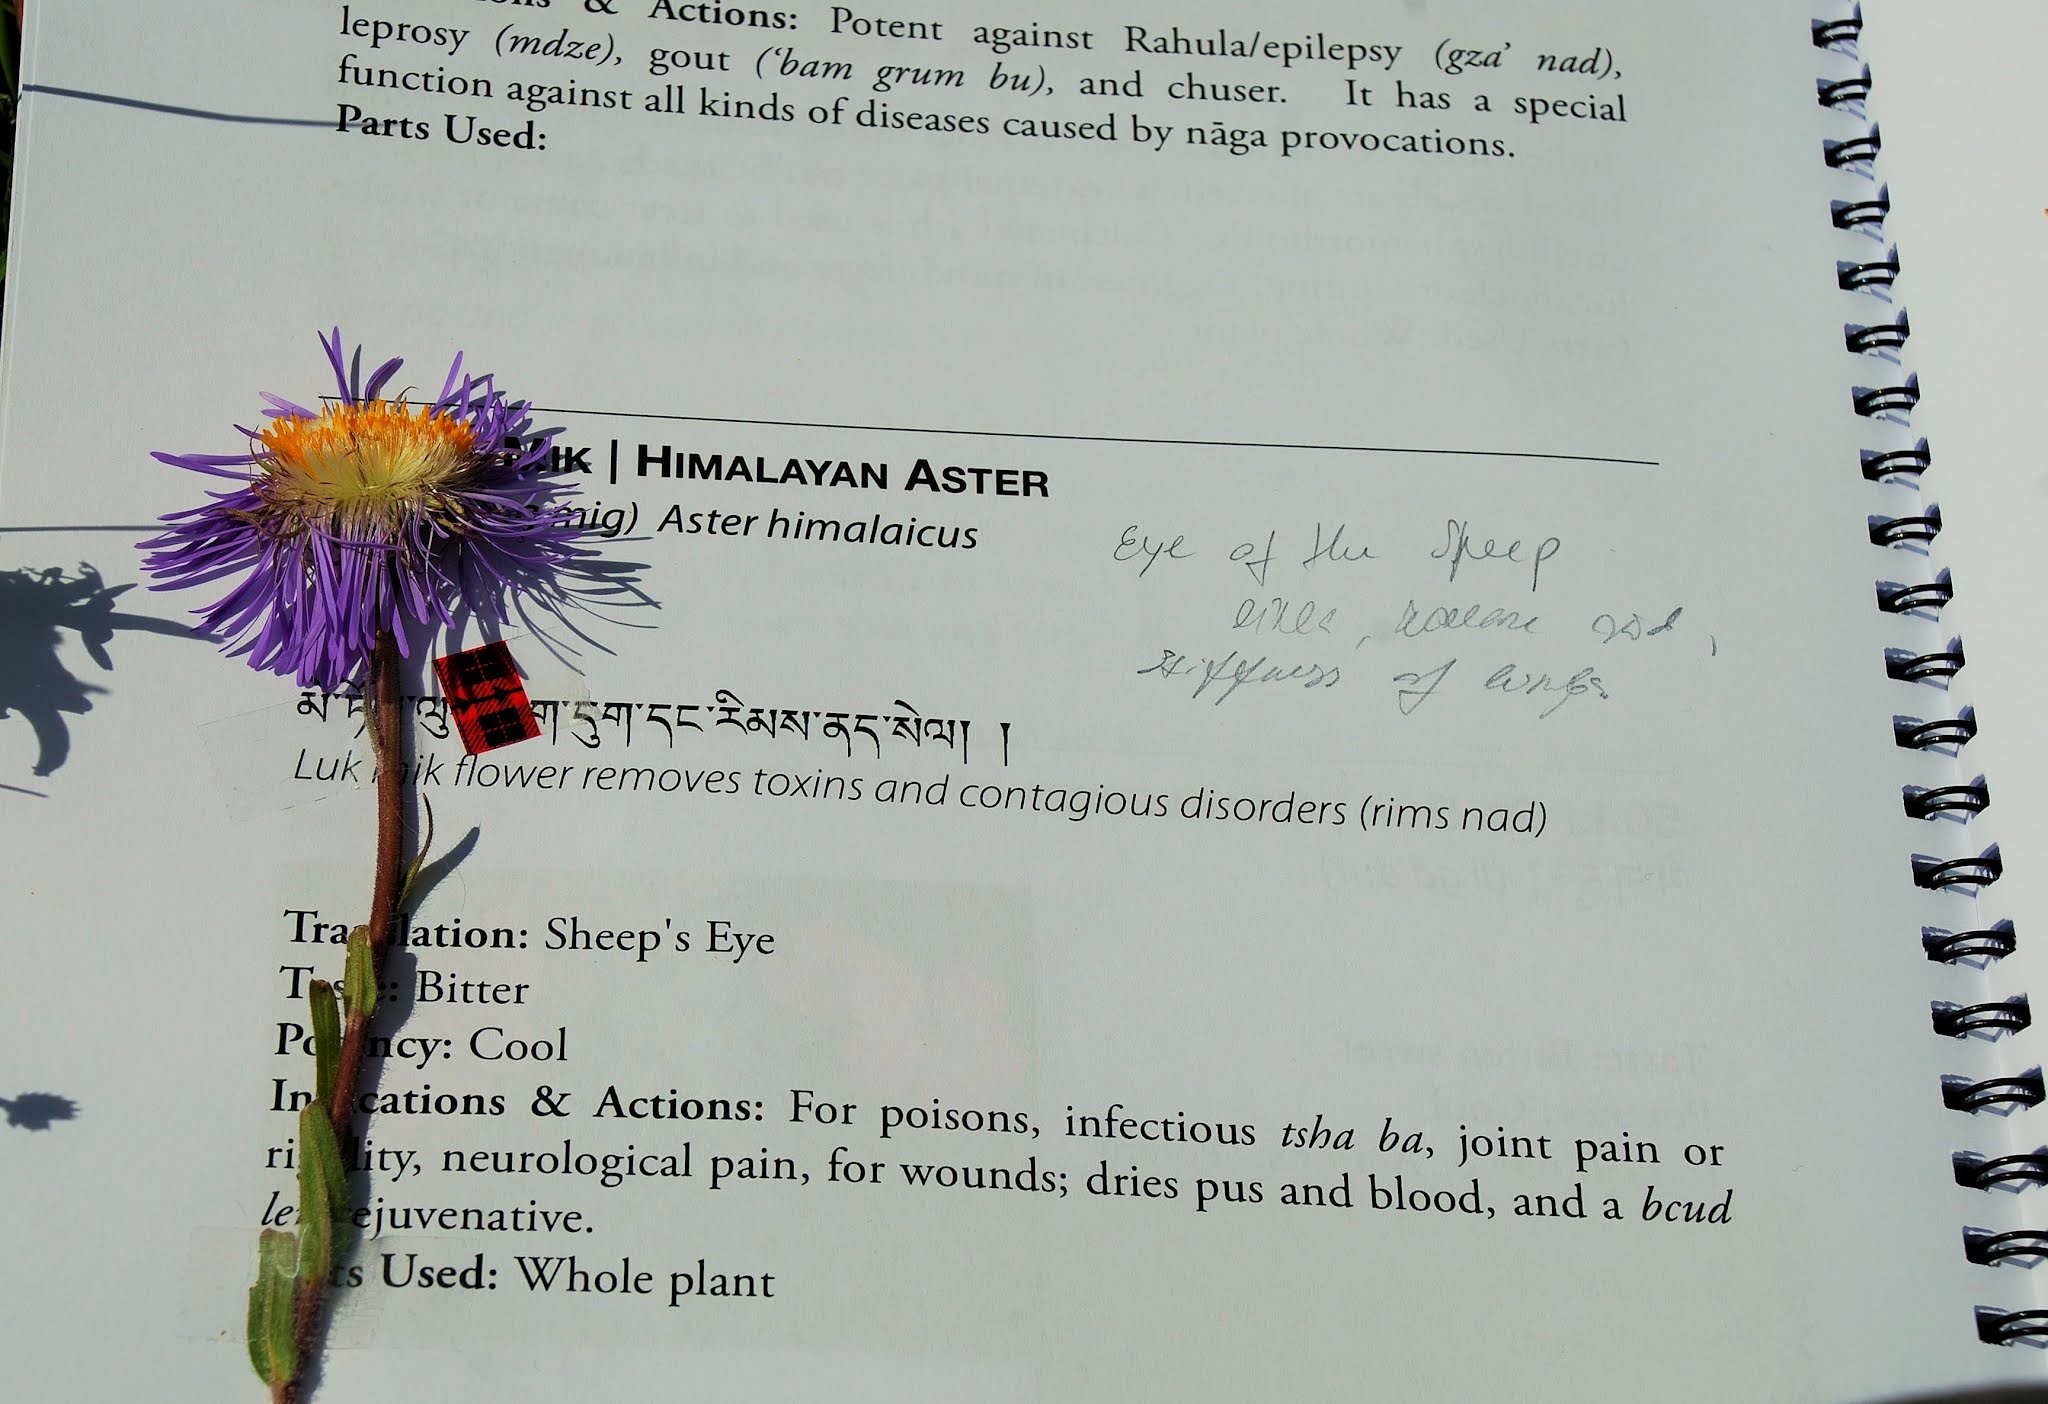 & Actions: Potent against Rahula/epilepsy (gza' nad),
leprosy (mdze), gout ('bam grum bu), and chuser. It has a special
function against all kinds of diseases caused by nāga provocations.
Parts Used:
Mik | Himalayan Aster
mig) Aster himalaicus
Eye of the Speep
stiffness of
དུག་དང་རིམས་ནད་སེལ། །
Luk mik flower removes toxins and contagious disorders (rims nad)
Translation: Sheep's Eye
Taste: Bitter
Potency: Cool
Indications & Actions: For poisons, infectious tsha ba, joint pain or
rigidity, neurological pain, for wounds; dries pus and blood, and a bcud
rejuvenative.
Used: Whole plant